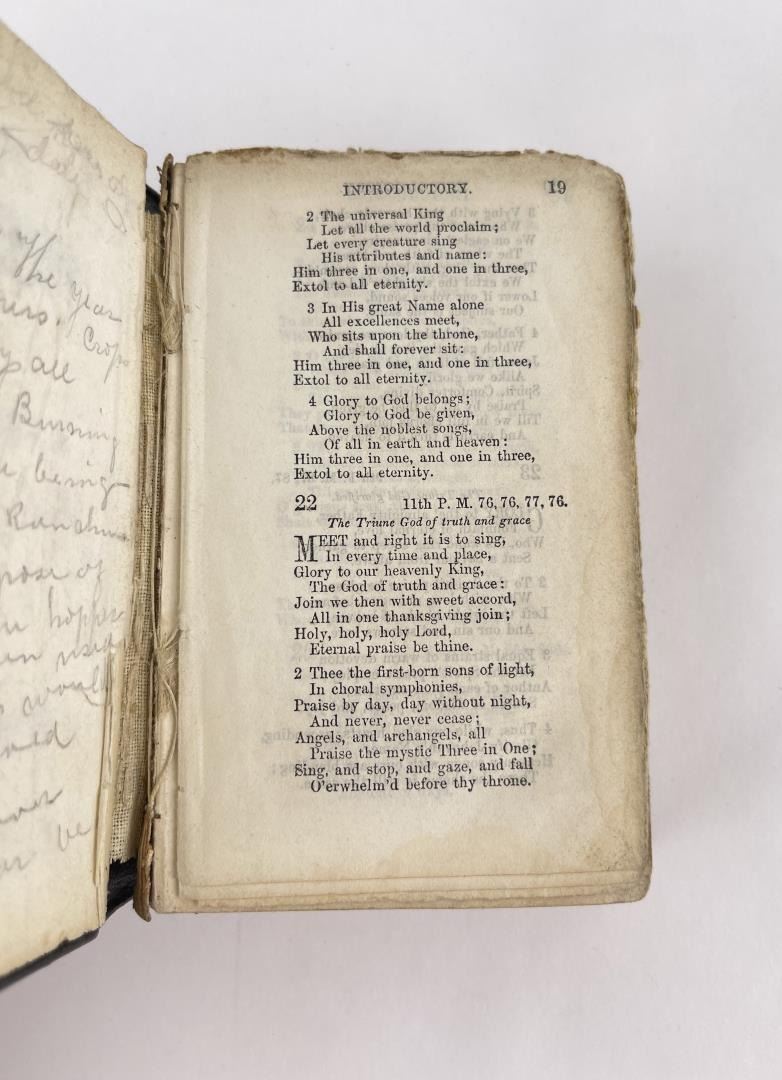 The year
Crops
all
Burning
being
INTRODUCTORY. 19
2 The universal King
Let all the world proclaim;
Let every creature sing
His attributes and name:
Him three in one, and one in three,
Extol to all eternity.
3 In His great Name alone
All excellences meet,
Who sits upon the throne,
And shall forever sit:
Him three in one, and one in three,
Extol to all eternity.
4 Glory to God belongs;
Glory to God be given,
Above the noblest songs,
Of all in earth and heaven:
Him three in one, and one in three,
Extol to all eternity.
22 11th P. M. 76, 76, 77, 76.
The Triune God of truth and grace
MEET and right it is to sing,
In every time and place,
Glory to our heavenly King,
The God of truth and grace:
Join we then with sweet accord,
All in one thanksgiving join;
Holy, holy, holy Lord,
Eternal praise be thine.
2 Thee the first-born sons of light,
In choral symphonies,
Praise by day, day without night,
And never, never cease;
Angels, and archangels, all
Praise the mystic Three in One;
Sing, and stop, and gaze, and fall
O'erwhelm'd before thy throne.